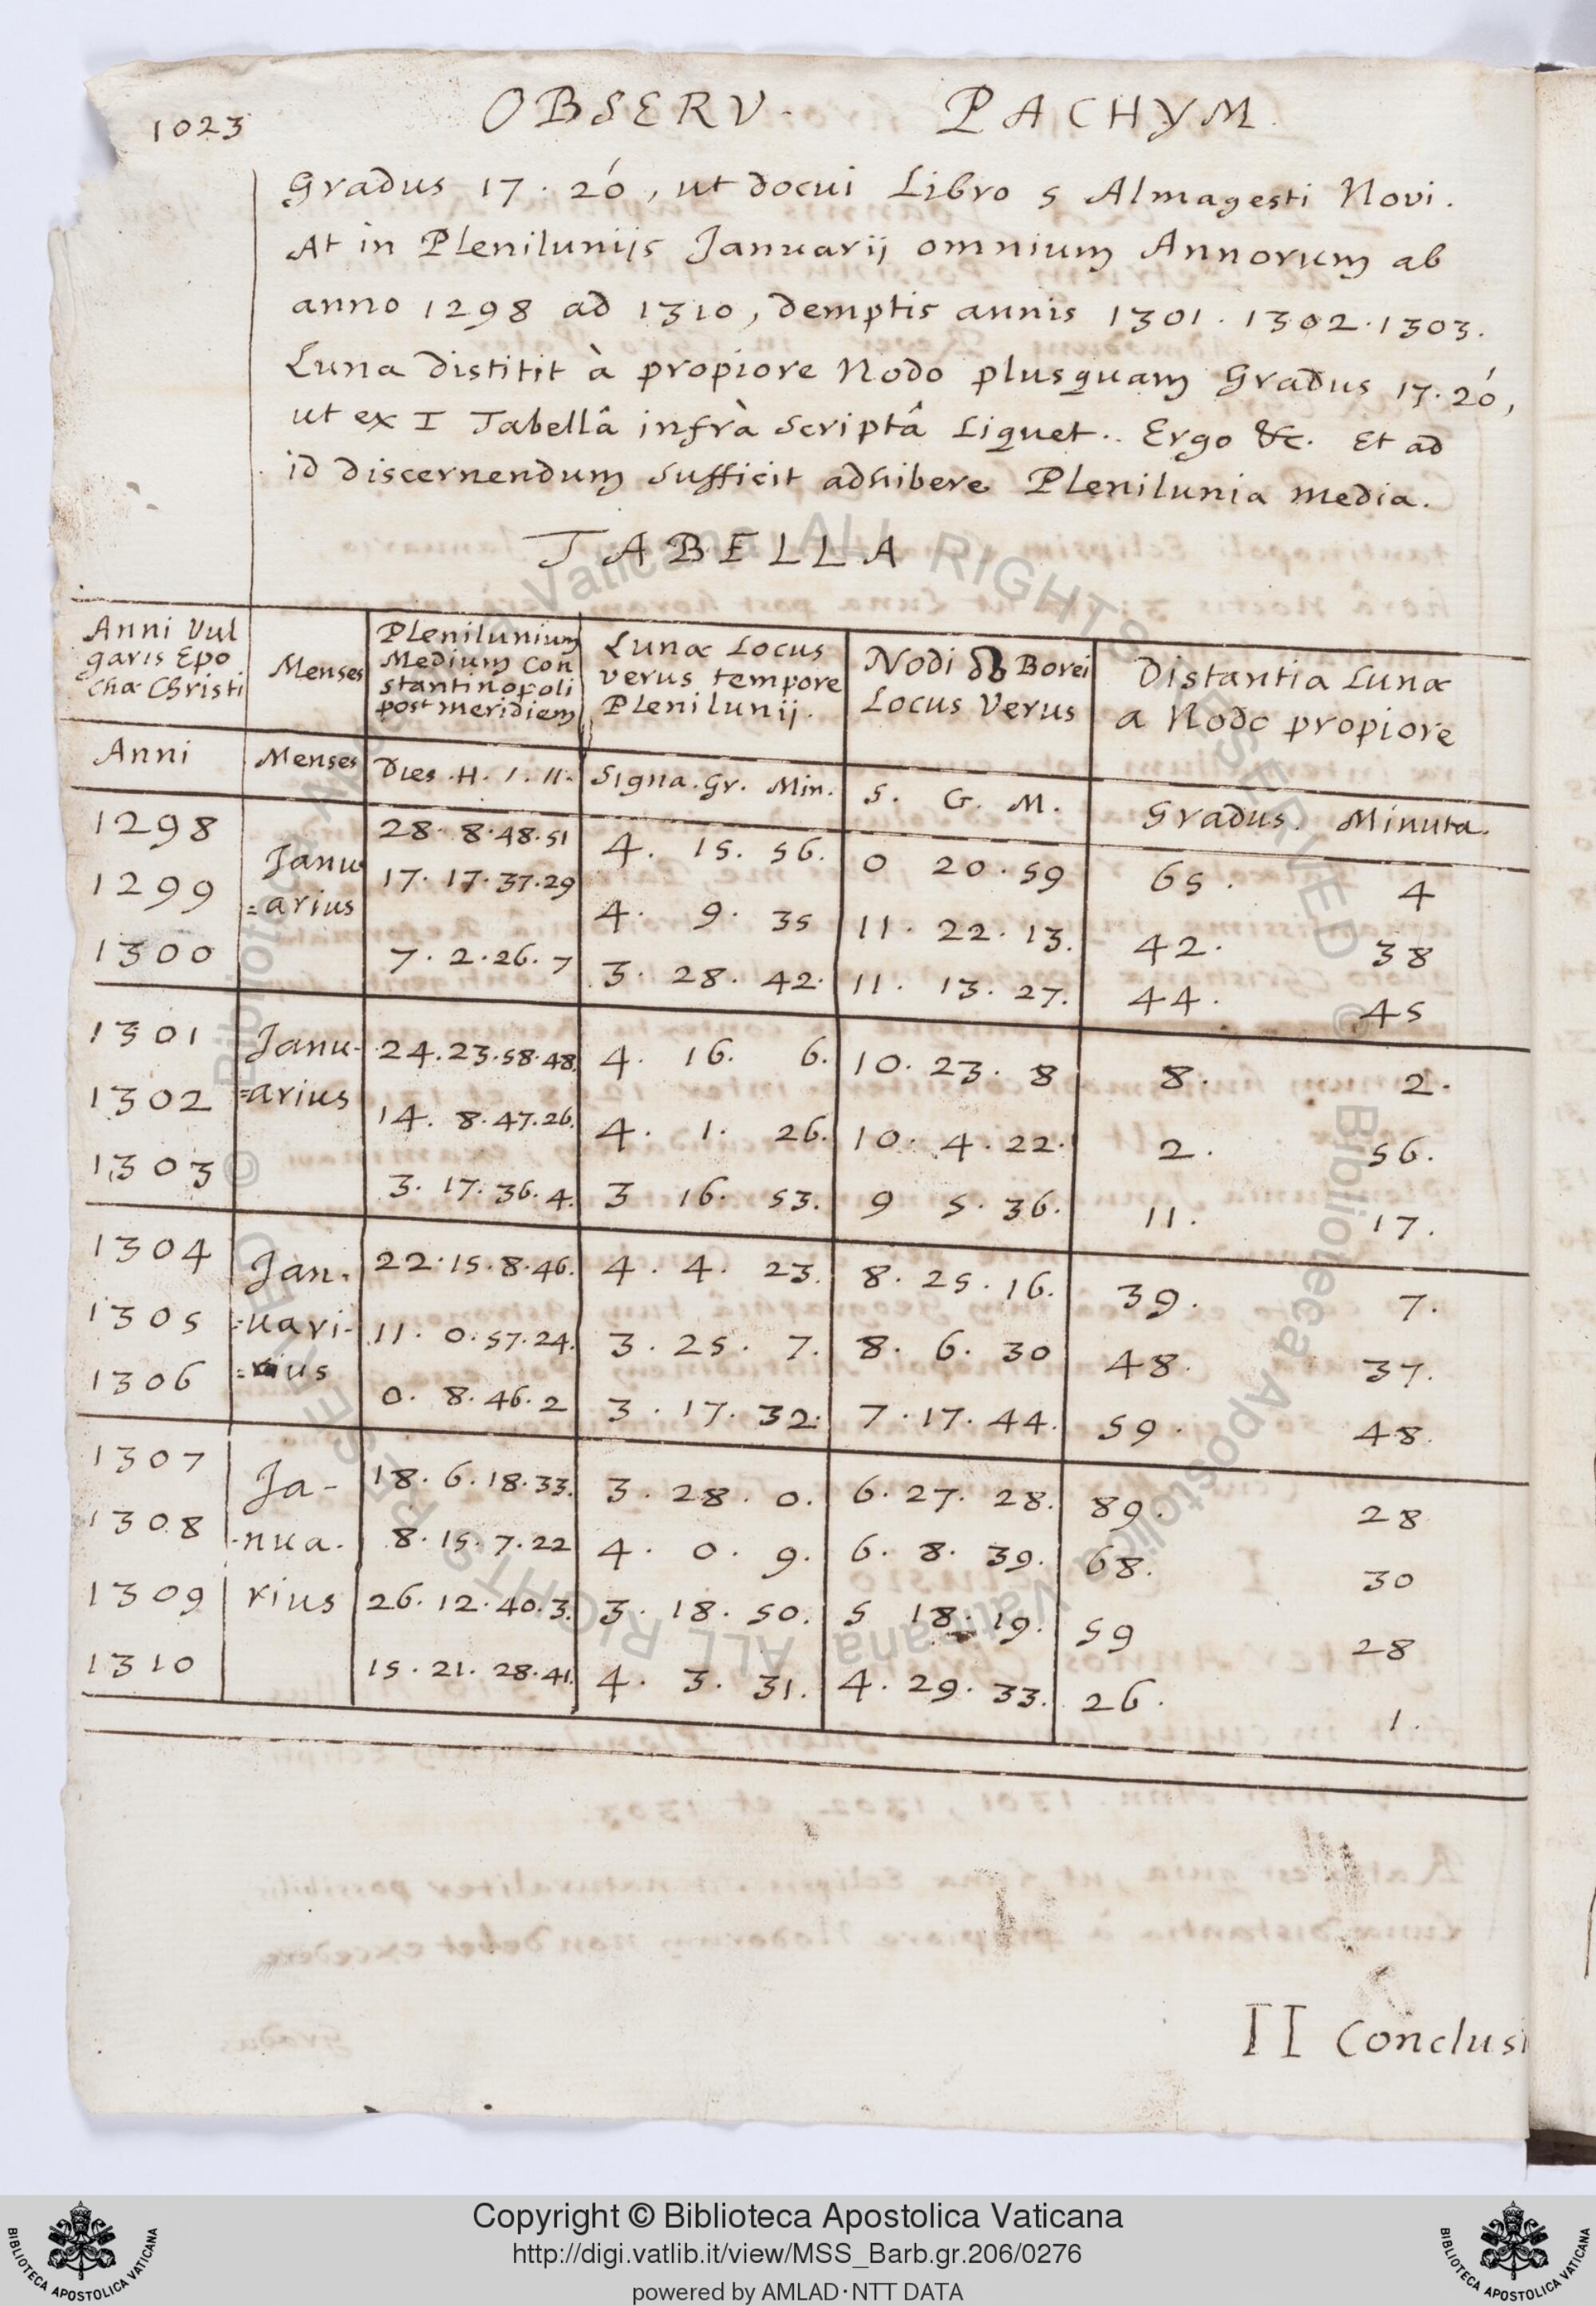 1023
OBSERV. PACHYM.
Gradus 17. 20́, ut docui Libro 5 Almagesti Novi.
At in Plenilunijs Januarij omnium Annorum ab
anno 1298 ad 1310, demptis annis 1301. 1302. 1303.
Luna distitit à propiore Nodo plusquam Gradus 17. 20́,
ut ex I Tabellâ infrà scriptâ Liquet.. Ergo &c. Et ad
id discernendum sufficit adhibere Plenilunia media.
TABELLA
Anni Vul
garis Epo
chæ Christi
Menses
Plenilunium
Medium Con
stantinopoli
post meridiem
Lunæ Locus
verus tempore
Plenilunij.
Nodi ☊ Borei
Locus Verus
Distantia Lunæ
a Nodo propiore
Anni Menses Dies. H. I. II. Signa. Gr. Min. S. G. M. Gradus. Minuta.
1298 Janu 28. 8. 48. 51 4. 15. 56. 0 20. 59 65. 4
1299 =arius 17. 17. 37. 29 4. 9. 35 11. 22. 13. 42. 38
1300 7. 2. 26. 7 3. 28. 42. 11. 13. 27. 44. 45
1301 Janu- 24. 23. 58. 48. 4. 16. 6. 10. 23. 8 8. 2.
1302 =arius 14. 8. 47. 26. 4. 1. 26. 10. 4. 22. 2. 56.
1303 3. 17. 36. 4. 3 16. 53. 9 5. 36. 11. 17.
1304 Jan. 22. 15. 8. 46. 4. 4. 23. 8. 25. 16. 39. 7.
1305 =uari- 11. 0. 57. 24. 3. 25. 7. 8. 6. 30 48. 37.
1306 =ius 0. 8. 46. 2 3. 17. 32. 7. 17. 44. 59. 48.
1307 Ja- 18. 6. 18. 33. 3. 28. 0. 6. 27. 28. 89. 28
1308 .nua. 8. 15. 7. 22 4. 0. 9. 6. 8. 39. 68. 30
1309 rius 26. 12. 40. 3. 3. 18. 50. 5 18. 19. 59 28
1310 15. 21. 28. 41. 4. 3. 31. 4. 29. 33. 26. 1.
II Conclusi
Copyright © Biblioteca Apostolica Vaticana
http://digi.vatlib.it/view/MSS_Barb.gr.206/0276
powered by AMLAD·NTT DATA
BIBLIOTECA APOSTOLICA VATICANA
BIBLIOTECA APOSTOLICA VATICANA